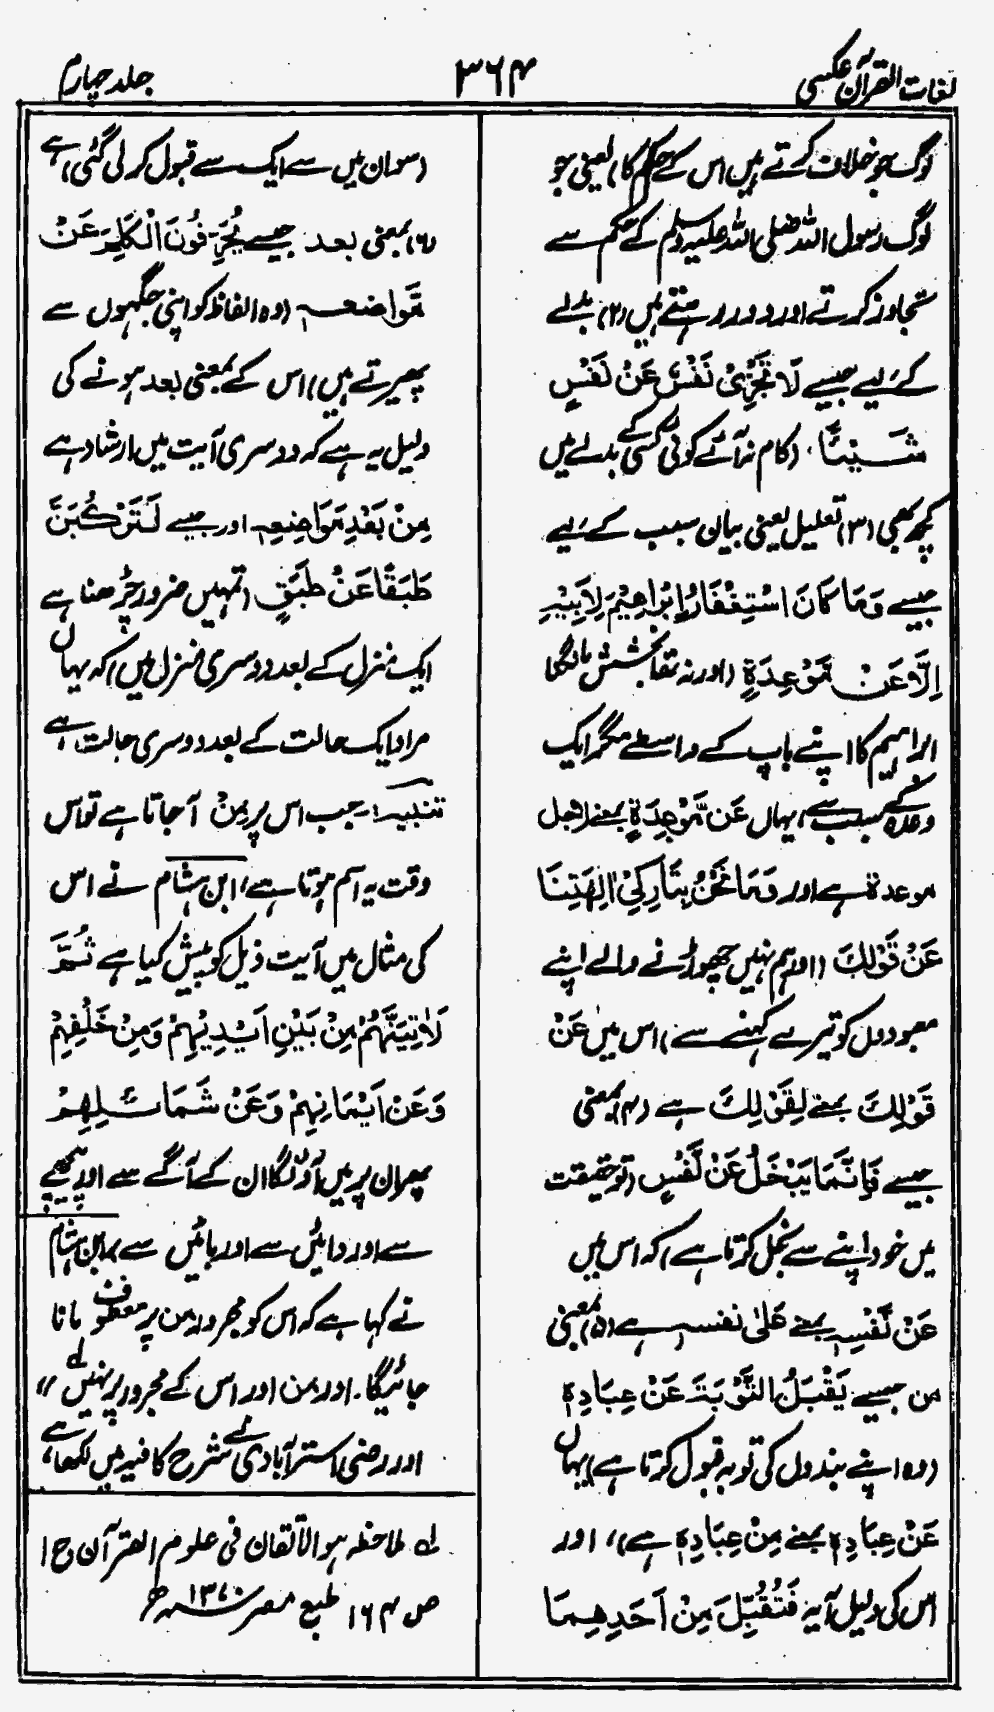 لغات القرآن عکسی
۳۶۴
جلد چہارم
لوگ جو خلاف کرتے ہیں اس کے حکم کا) یعنی جو
لوگ رسول اللہ صلی اللہ علیہ وسلم کے حکم سے
تجاوز کرتے اور دور رہتے ہیں (۲) بدلے
کے لیے جیسے لَا تَجْزِیْ نَفْسٌ عَنْ نَفْسٍ
شَیْئًا، (کام نہ آئے کوئی کسی کے بدلے میں
کچھ بھی (۳) تعلیل یعنی بیان سبب کے لیے
جیسے وَمَا كَانَ اسْتِغْفَارُ اِبْرَاهِیْمَ لِاَبِیْهِ
اِلَّا عَنْ مَّوْعِدَةٍ (اور نہ تھا بخشش مانگنا
ابراہیم کا اپنے باپ کے واسطے مگر ایک
وعدہ کے سبب سے) یہاں عَن مَّوْعِدَةٍ بمعنے لاجل
موعدۃ ہے اور وَمَا نَحْنُ بِتَارِكِیْ اٰلِهَتِنَا
عَنْ قَوْلِكَ (اور ہم نہیں چھوڑنے والے اپنے
معبودوں کو تیرے کہنے سے) اس میں عَنْ
قَوْلِكَ بمعنے لِقَوْلِكَ ہے (۴) بمعنی
جیسے فَاِنَّمَا یَبْخَلُ عَنْ نَّفْسٍ (تو حقیقت
میں خود اپنے سے بخل کرتا ہے) کہ اس میں
عَنْ نَّفْسِهٖ بمعنے عَلٰی نفسہ ہے (۵) بمعنی
من جیسے یَقْبَلُ التَّوْبَةَ عَنْ عِبَادِهٖ
(وہ اپنے بندوں کی توبہ قبول کرتا ہے) یہاں
عَنْ عِبَادِهٖ بمعنے مِنْ عِبَادِهٖ ہے)، اور
اس کی دلیل آیہ فَتُقُبِّلَ مِنْ اَحَدِهِمَا
(سوان میں سے ایک سے قبول کر لی گئی) ہے
(۶) بمعنی بعد جیسے یُحَرِّفُوْنَ الْكَلِمَ عَنْ
مَّوَاضعہ (وہ الفاظ کو اپنی جگہوں سے
پھیرتے ہیں) اس کے بمعنی بعد ہونے کی
دلیل یہ ہے کہ دوسری آیت میں ارشاد ہے
مِنْ بَعْدِ مَوَاضِعِهٖ اور جیسے لَتَرْكَبُنَّ
طَبَقًا عَنْ طَبَقٍ (تمہیں ضرور چڑھنا ہے
ایک منزل کے بعد دوسری منزل میں) کہ یہاں
مراد ایک حالت کے بعد دوسری حالت ہے
تنبیہ:۔ جب اس پر مِنْ آجاتا ہے تو اس
وقت یہ اسم ہوتا ہے، ابن ہشام نے اس
کی مثال میں آیت ذیل کو پیش کیا ہے ثُمَّ
لَاٰتِیَنَّهُمْ مِنْ بَیْنِ اَیْدِیْهِمْ وَمِنْ خَلْفِهِمْ
وَعَنْ اَیْمَانِهِمْ وَعَنْ شَمَائِلِهِمْ
پھر ان پر میں آؤں گا ان کے آگے سے اور پیچھے
سے اور دائیں سے اور بائیں سے)، ابن ہشام
نے کہا ہے کہ اس کو مجرور من پر معطوف مانا
جائیگا۔ اور من اور اس کے مجرور پر نہیں لے //
اور رضی استرآبادی نے شرح کافیہ میں لکھا ہے،
لے ملاحظہ ہو الاتقان فی علوم القرآن ج ۱
ص ۱۶۴ طبع مصر ۱۳۷۰ھ